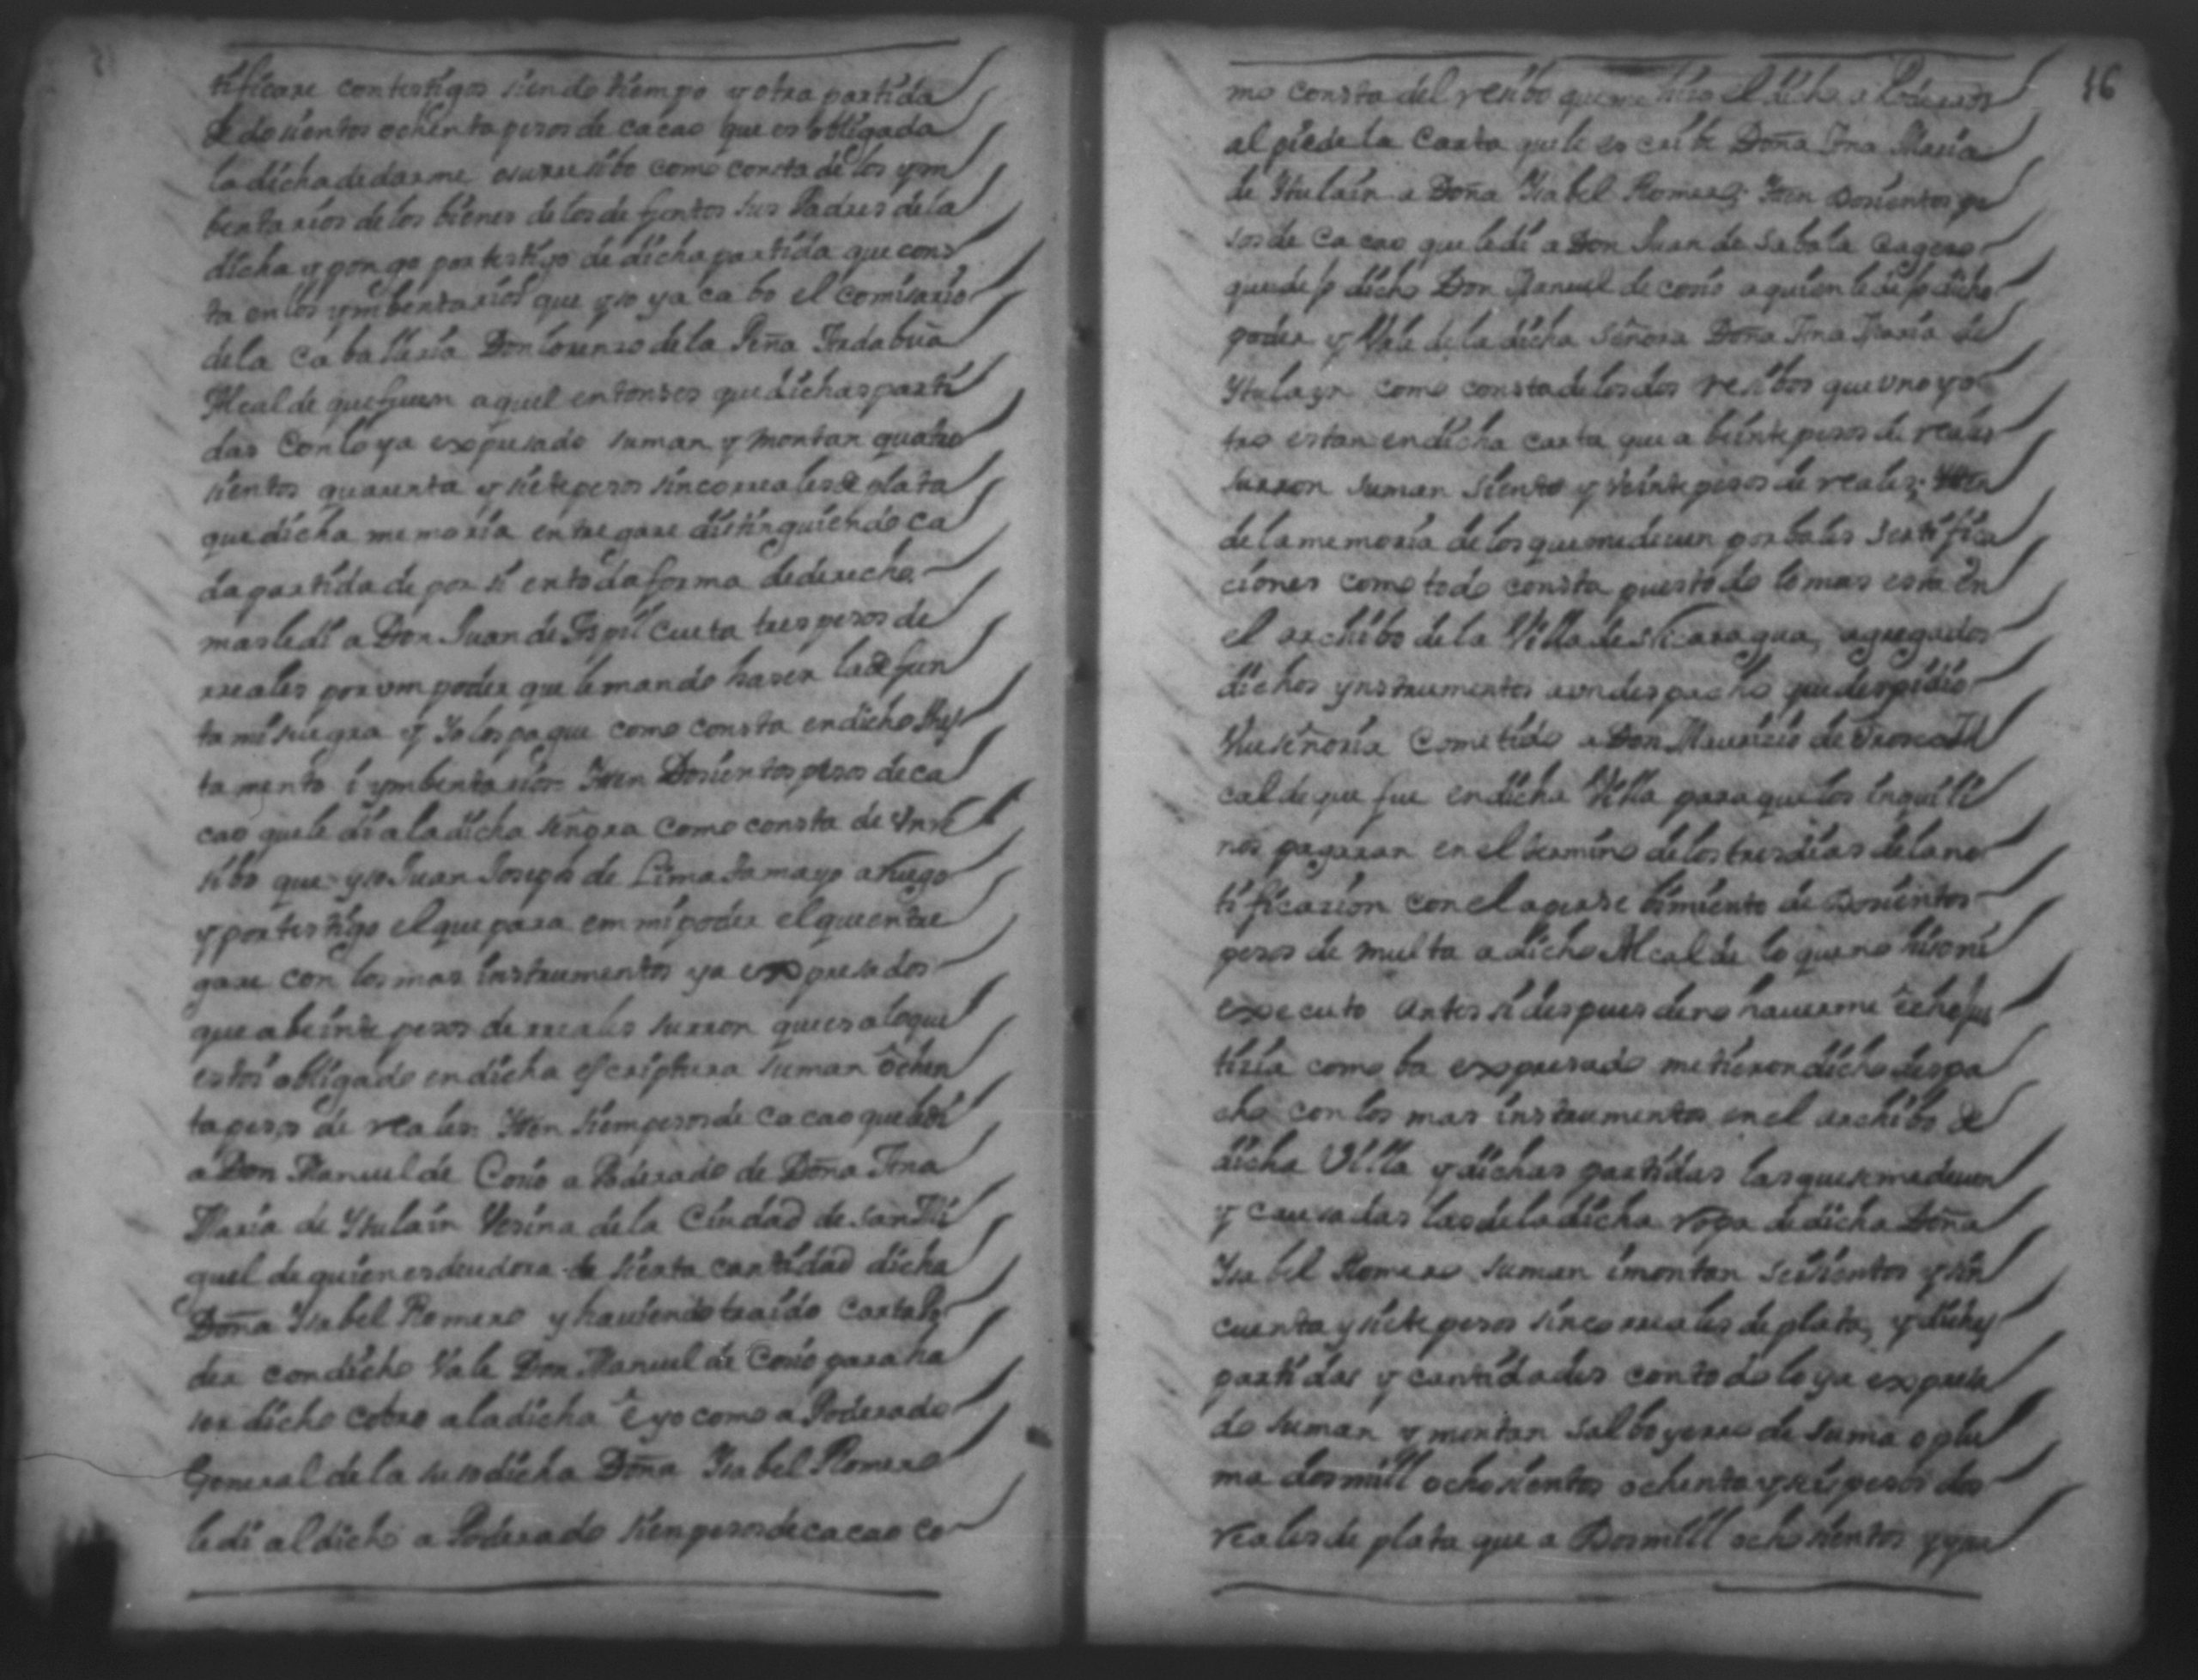 tificare contestigos siendo tiempo y otra partida
de dosientos ochenta pesos de cacao que es obligada
la dicha de darme osurresibo como consta de los ym
bentarios de los bienes de los defuntos sus Padres de la
dicha y pongo por testigo de dicha partida que cons
ta en los ymbentarios que yso ya cabo el comisario
de la caballeria Don Lorenzo de la Peña
Alcalde que fue en aquel entonses que dichas parti
das con lo ya expresado suman y montan quatro
sientos quarenta y siete pesos sinco rreales de plata
que dicha memoria entregare distinguiendo ca
da partida de por si en toda forma de derecho
mas le di a Don Juan de Cueta tres pesos de
rreales por vm poder que le mando haser la defun
ta mi suegra y Yo los pague como consta en dicho thes
tamento i ymbentarios Iten Dosientos pesos de ca
cao que le di a la dicha señora como consta de vn re
sibo que yso Juan Joseph de Lima tamayo a Ruego
y por testigo el que para em mi poder el que entre
gare con los mas instrumentos ya expresados
que a beinte pesos de rreales surron que es a lo que
estoi obligado en dicha escriptura suman ochen
ta pesos de reales. Iten siem pesos de cacao que le di
a Don Manuel de Cosio a Poderado de Doña Ana
Maria de Ytulain Vesina de la Ciudad de san Mi
guel de quien es deudora de sierta cantidad dicha
Doña Ysabel Romero y haviendo traido carta Po
der con dicho Vale Don Manuel de Cosio para ha
ser dicho cobro a la dicha e yo como a Poderado
General de la susodicha Doña Ysabel Romero
le di al dicho a Poderado sien pesos de cacao co
16
mo consta del resibo que me hiso el dicho a Poderado
al pie de la Carta que le escribe Doña Ana Maria
de Ytulain a Doña Ysabel Romero; Iten Dosientos pe
sos de cacao que le di a Don Juan de Sabala Cagero
que dejo dicho Don Manuel de cosio a quien le dejo dicho
poder y Vale de la dicha señora Doña Ana Maria de
Ytulayn como consta de los dos resibos que vno y o
tro estan en dicha carta que a beinte pesos de reales
surron suman siento y veinte pesos de reales; Iten
de la memoria de los que me deven por bales sertifica
ciones como todo consta puesto do lo mas esta en
el archibo de la Villa de Nicaragua, agregados
dichos ynstrumentos a vn despacho que despidio
Vuseñoria Cometido a Don Maurizio de Al
calde que fue en dicha Villa para que los inquili
nos pagaran en el termino de los tres dias de la no
tificacion con el apersebimiento de Dosientos
pesos de multa a dicho Alcalde lo que no hiso ni
executo antes si despues de no haverme echo jus
tizia como ba expresado metieron dicho despa
cho con los mas instrumentos en el archibo de
dicha Villa y dichas partidas las que se me deven
y causadas las de la dicha ropa de dicha Doña
Ysabel Romero suman i montan seisientos y sin
cuenta y siete pesos sinco rreales de plata, y dichas
partidas y cantidades con todo lo ya expresa
do suman y montan salbo yerro de suma o plu
ma dos mill ochosientos ochenta y seis pesos dos
reales de plata que a Dos mill ochosientos y